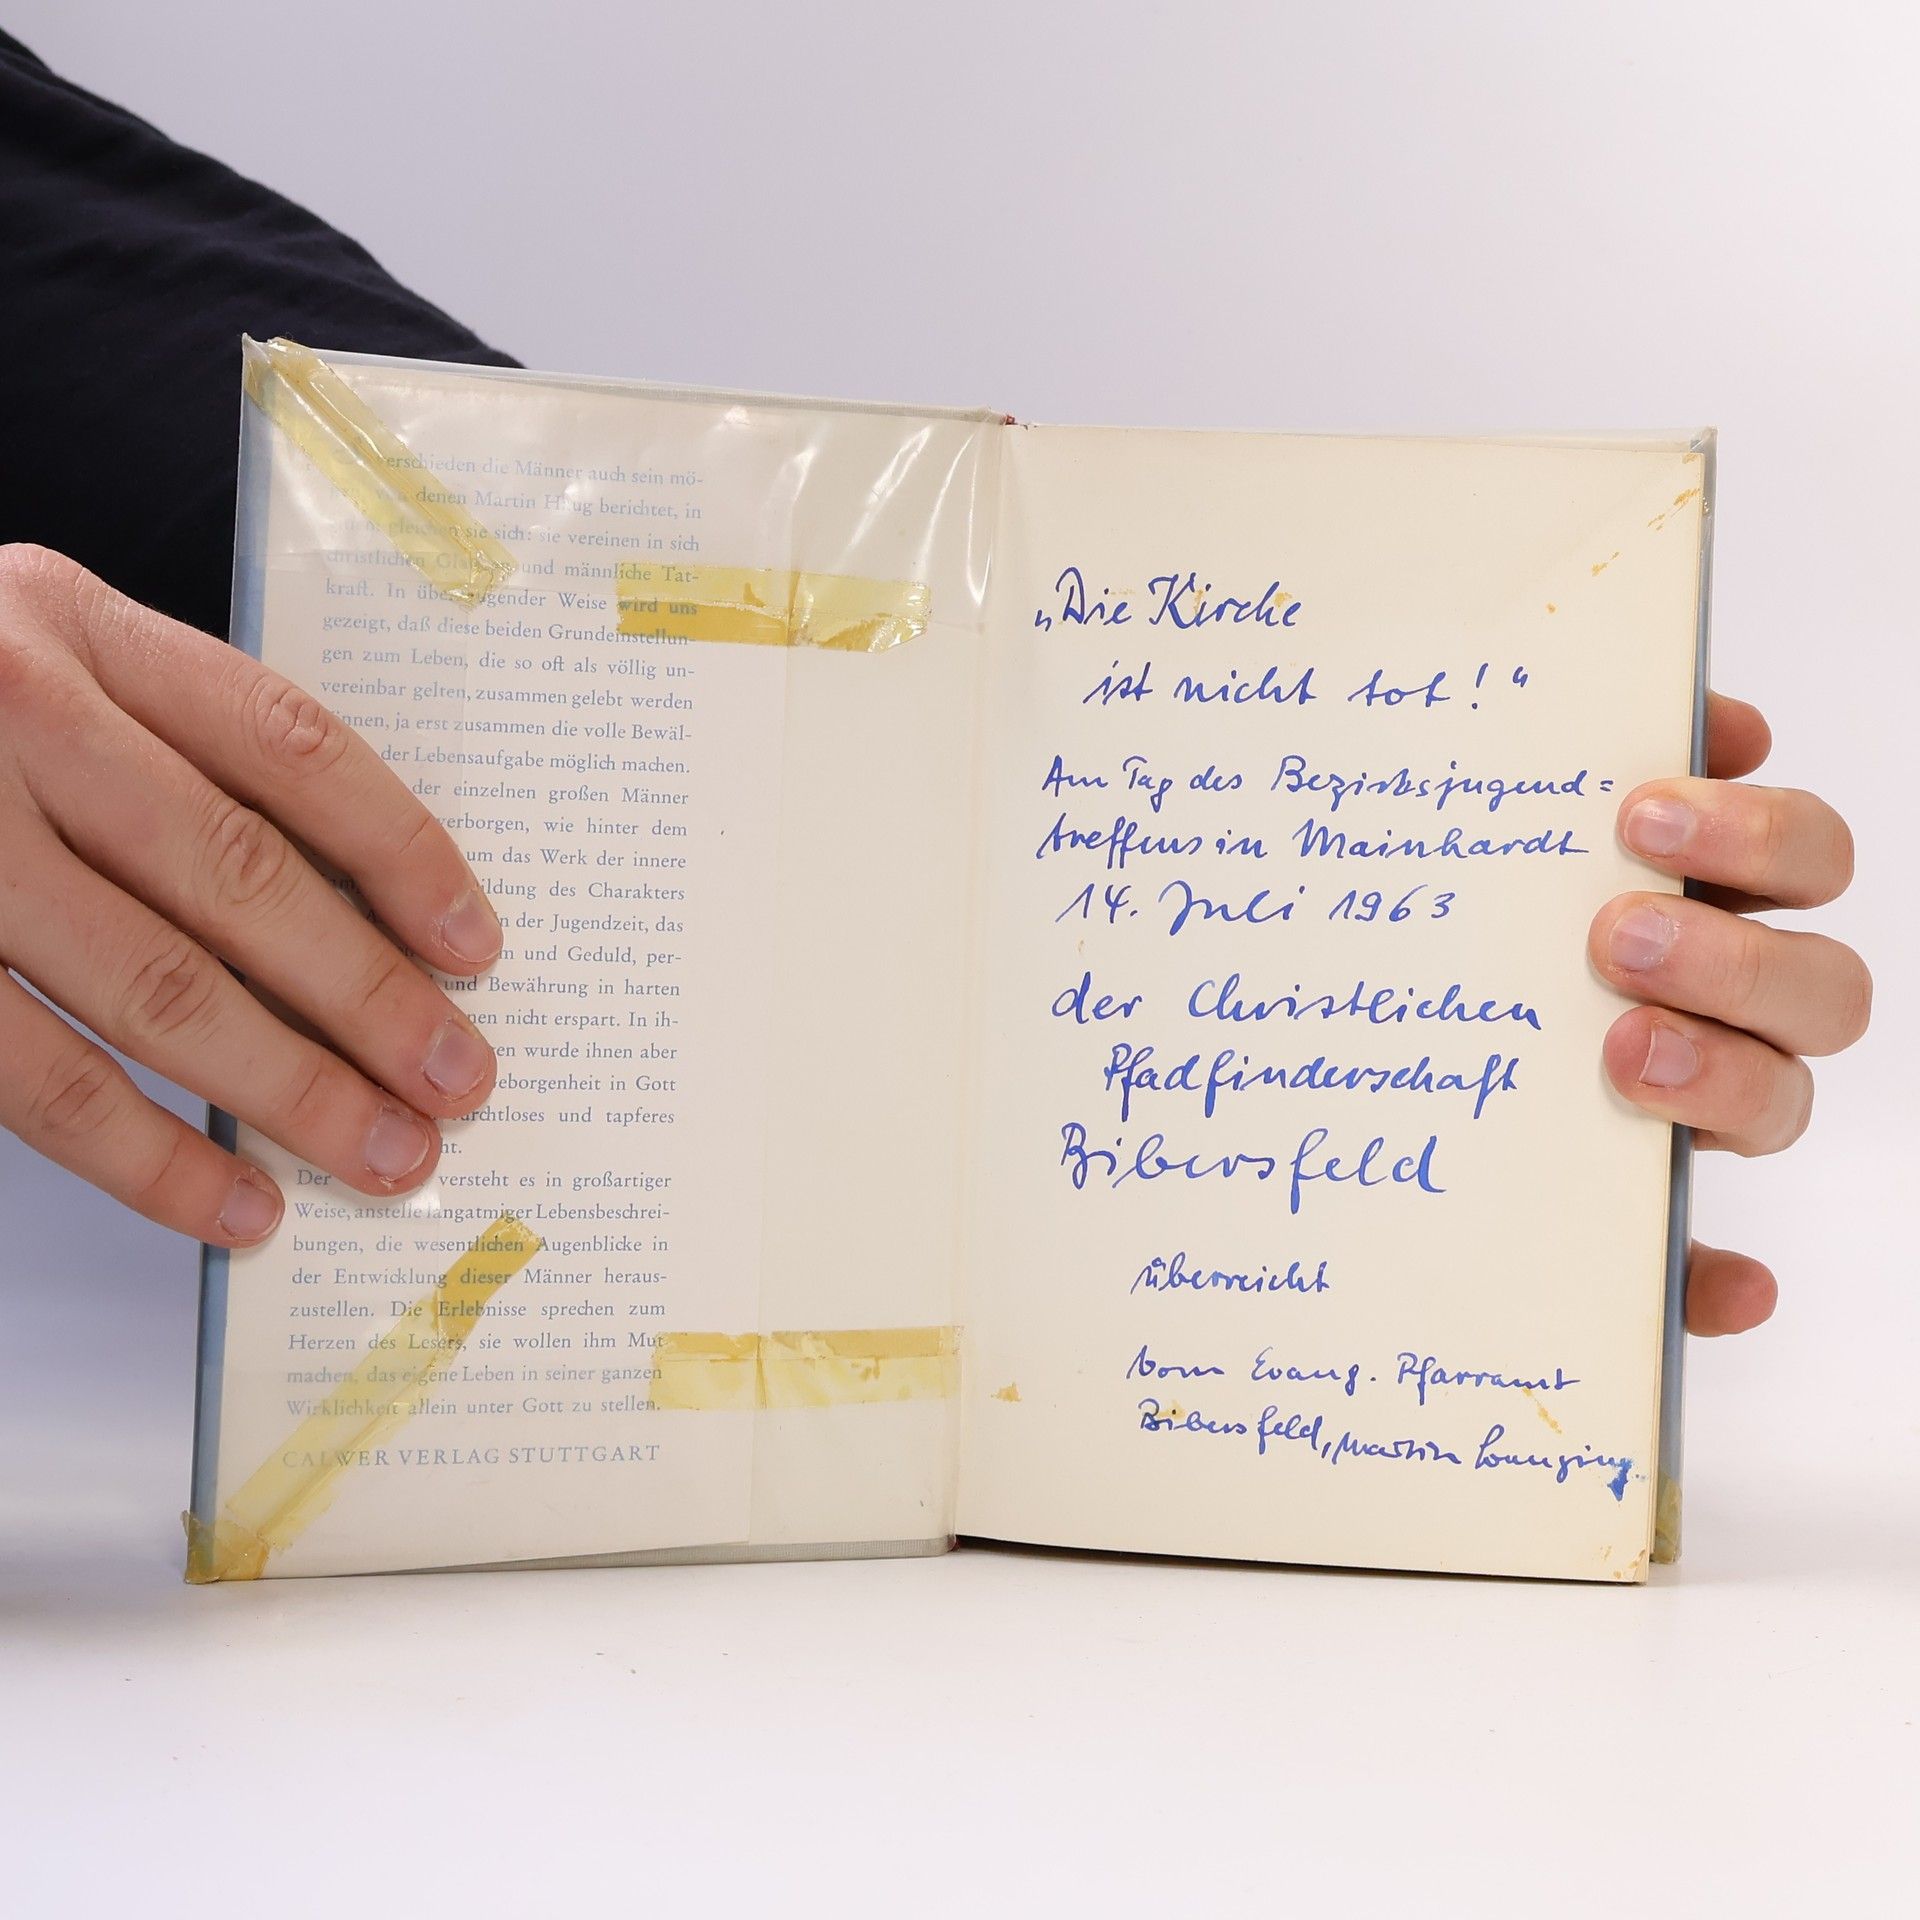 verschieden die Männer auch sein mö-
denen Martin Haug berichtet, in
gleichen sie sich: sie vereinen in sich
christlichen Glauben und männliche Tat-
kraft. In überzeugender Weise wird uns
gezeigt, daß diese beiden Grundeinstellun-
gen zum Leben, die so oft als völlig un-
vereinbar gelten, zusammen gelebt werden
können, ja erst zusammen die volle Bewäl-
der Lebensaufgabe möglich machen.
der einzelnen großen Männer
verborgen, wie hinter dem
um das Werk der innere
ildung des Charakters
in der Jugendzeit, das
m und Geduld, per-
und Bewährung in harten
nen nicht erspart. In ih-
en wurde ihnen aber
eborgenheit in Gott
urchtloses und tapferes
ht.
Der versteht es in großartiger
Weise, anstelle langatmiger Lebensbeschrei-
bungen, die wesentlichen Augenblicke in
der Entwicklung dieser Männer heraus-
zustellen. Die Erlebnisse sprechen zum
Herzen des Lesers, sie wollen ihm Mut
machen, das eigene Leben in seiner ganzen
Wirklichkeit allein unter Gott zu stellen.
CALWER VERLAG STUTTGART
„Die Kirche
ist nicht tot!“
Am Tag des Bezirksjugend=
treffens in Mainhardt
14. Juli 1963
der Christlichen
Pfadfinderschaft
Bibersfeld
überreicht
vom Evang. Pfarramt
Bibersfeld, Martin